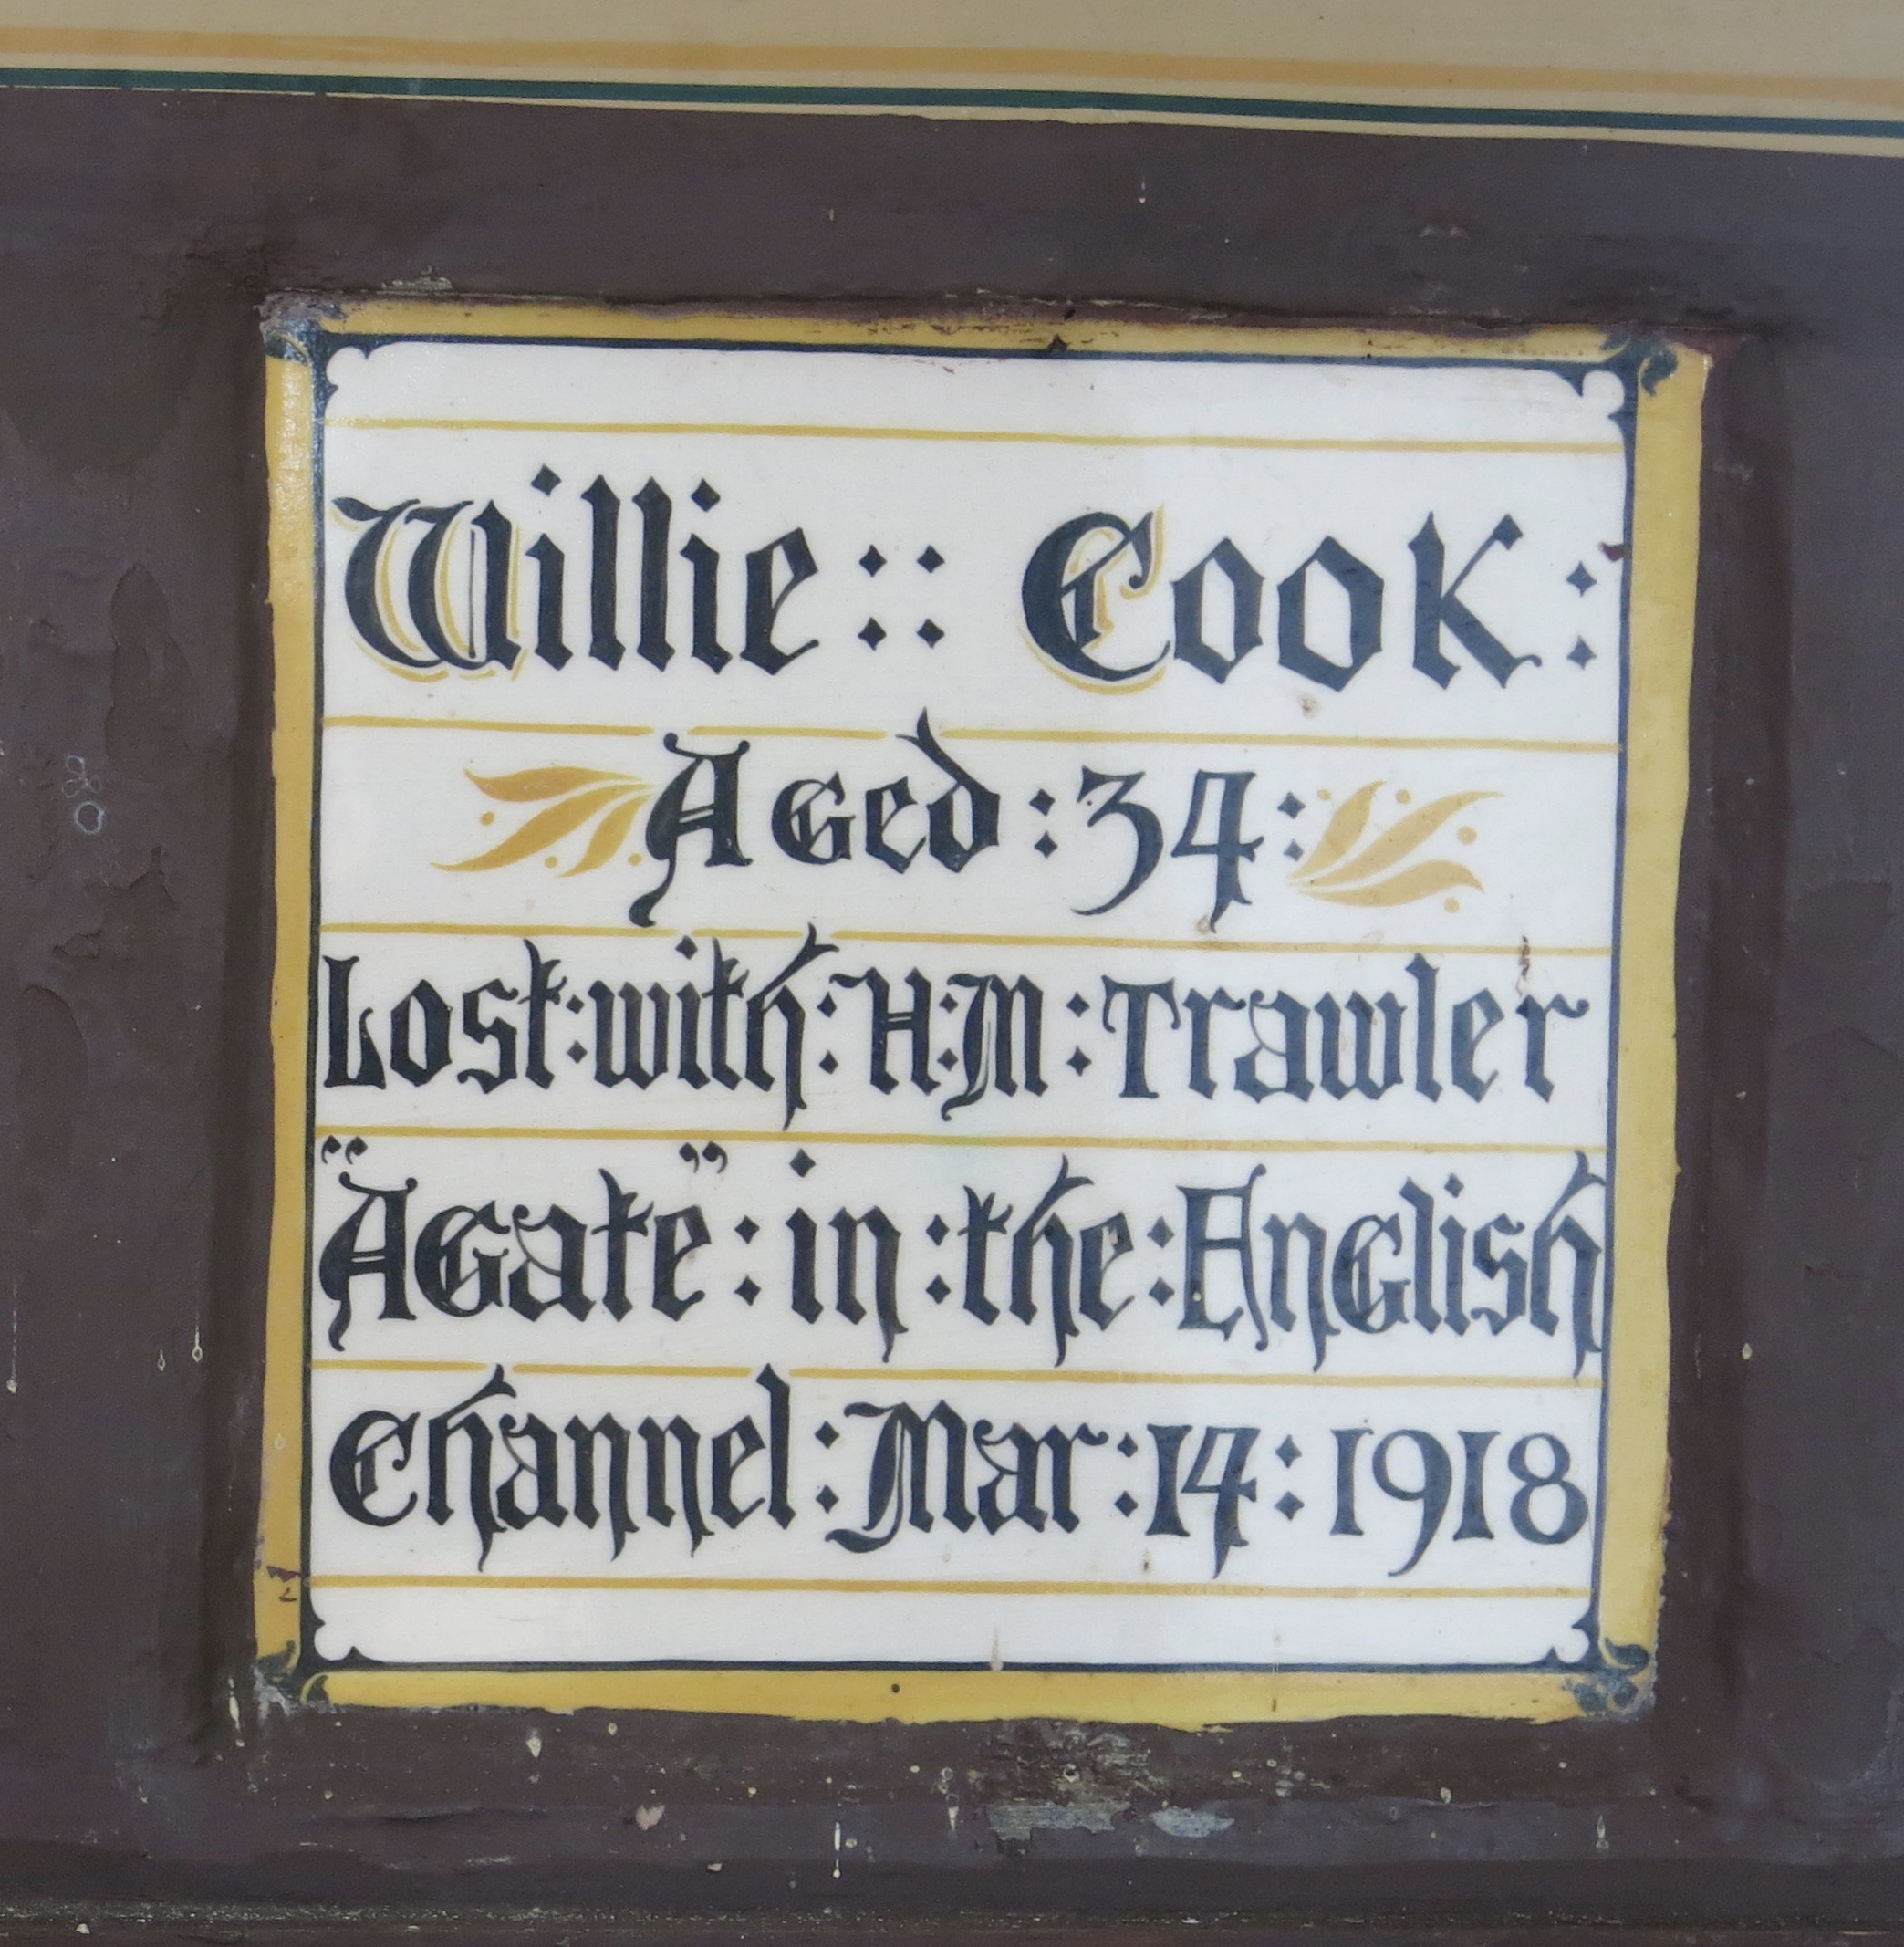 Willie :: Cook :
Aged : 34 :
Lost : with : H : M : Trawler
"Agate" : in : the : English
Channel : Mar : 14 : 1918